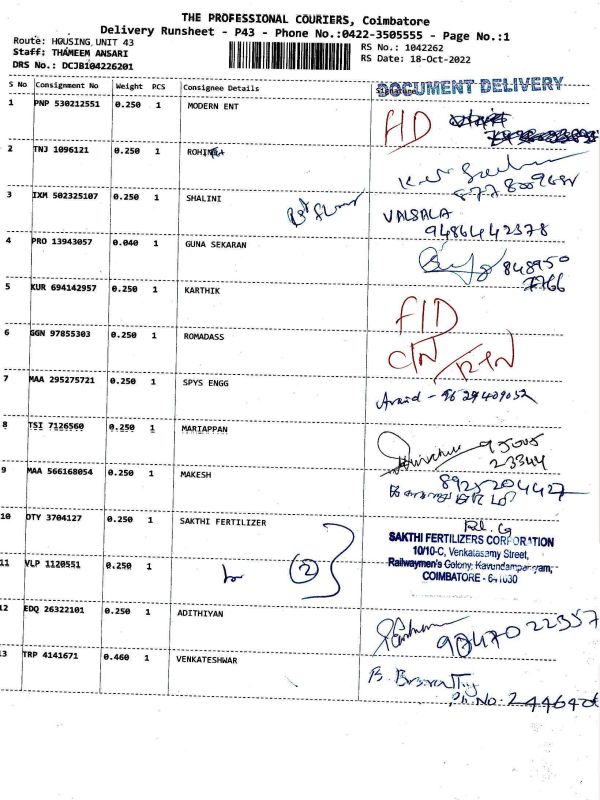 THE PROFESSIONAL COURIERS, Coimbatore
Delivery Runsheet - P43 - Phone No.:0422-3505555 - Page No.:1
Route: HOUSING UNIT 43
Staff: THAMEEM ANSARI
DRS No.: DCJB104226201
RS No.: 1042262
RS Date: 18-Oct-2022
S No Consignment No Weight PCS Consignee Details Signature
DOCUMENT DELIVERY
1 PNP 530212551 0.250 1 MODERN ENT
2 TNJ 1096121 0.250 1 ROHINI
3 IXM 502325107 0.250 1 SHALINI VALSALA
9486442378
4 PRO 13943057 0.040 1 GUNA SEKARAN 848950
7766
5 KUR 694142957 0.250 1 KARTHIK
6 GGN 97855303 0.250 1 ROMADASS
7 MAA 295275721 0.250 1 SPYS ENGG
8 TSI 7126560 0.250 1 MARIAPPAN 95005
23344
9 MAA 566168054 0.250 1 MAKESH 8925204427
10 OTY 3704127 0.250 1 SAKTHI FERTILIZER
SAKTHI FERTILIZERS CORPORATION
10/10-C, Venkatasamy Street,
Railwaymen's Colony, Kavundampalayam,
COIMBATORE - 641030
11 VLP 1120551 0.250 1 2
12 EDQ 26322101 0.250 1 ADITHIYAN 9047022357
13 TRP 4141671 0.460 1 VENKATESHWAR
Ph.No: